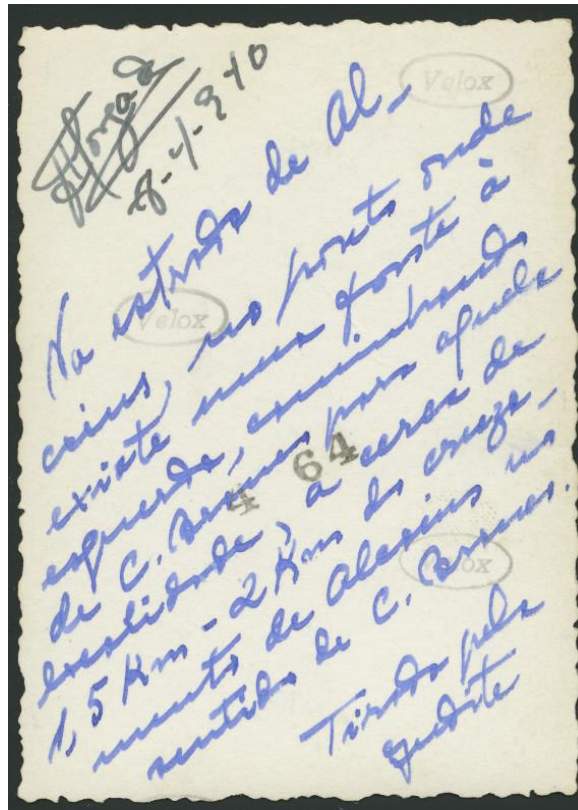 8-4-940
Velox
Na estrada de Al-
ceins, no ponto onde
existe uma fonte à
Velox
esquerda, caminhando
de C. Branco para aquela
4 64
localidade, a cerca de
1,5 Km - 2 Km do cruza-
Velox
mento de Alceins no
sentido de C. Branco.
Tirada pela
Judite